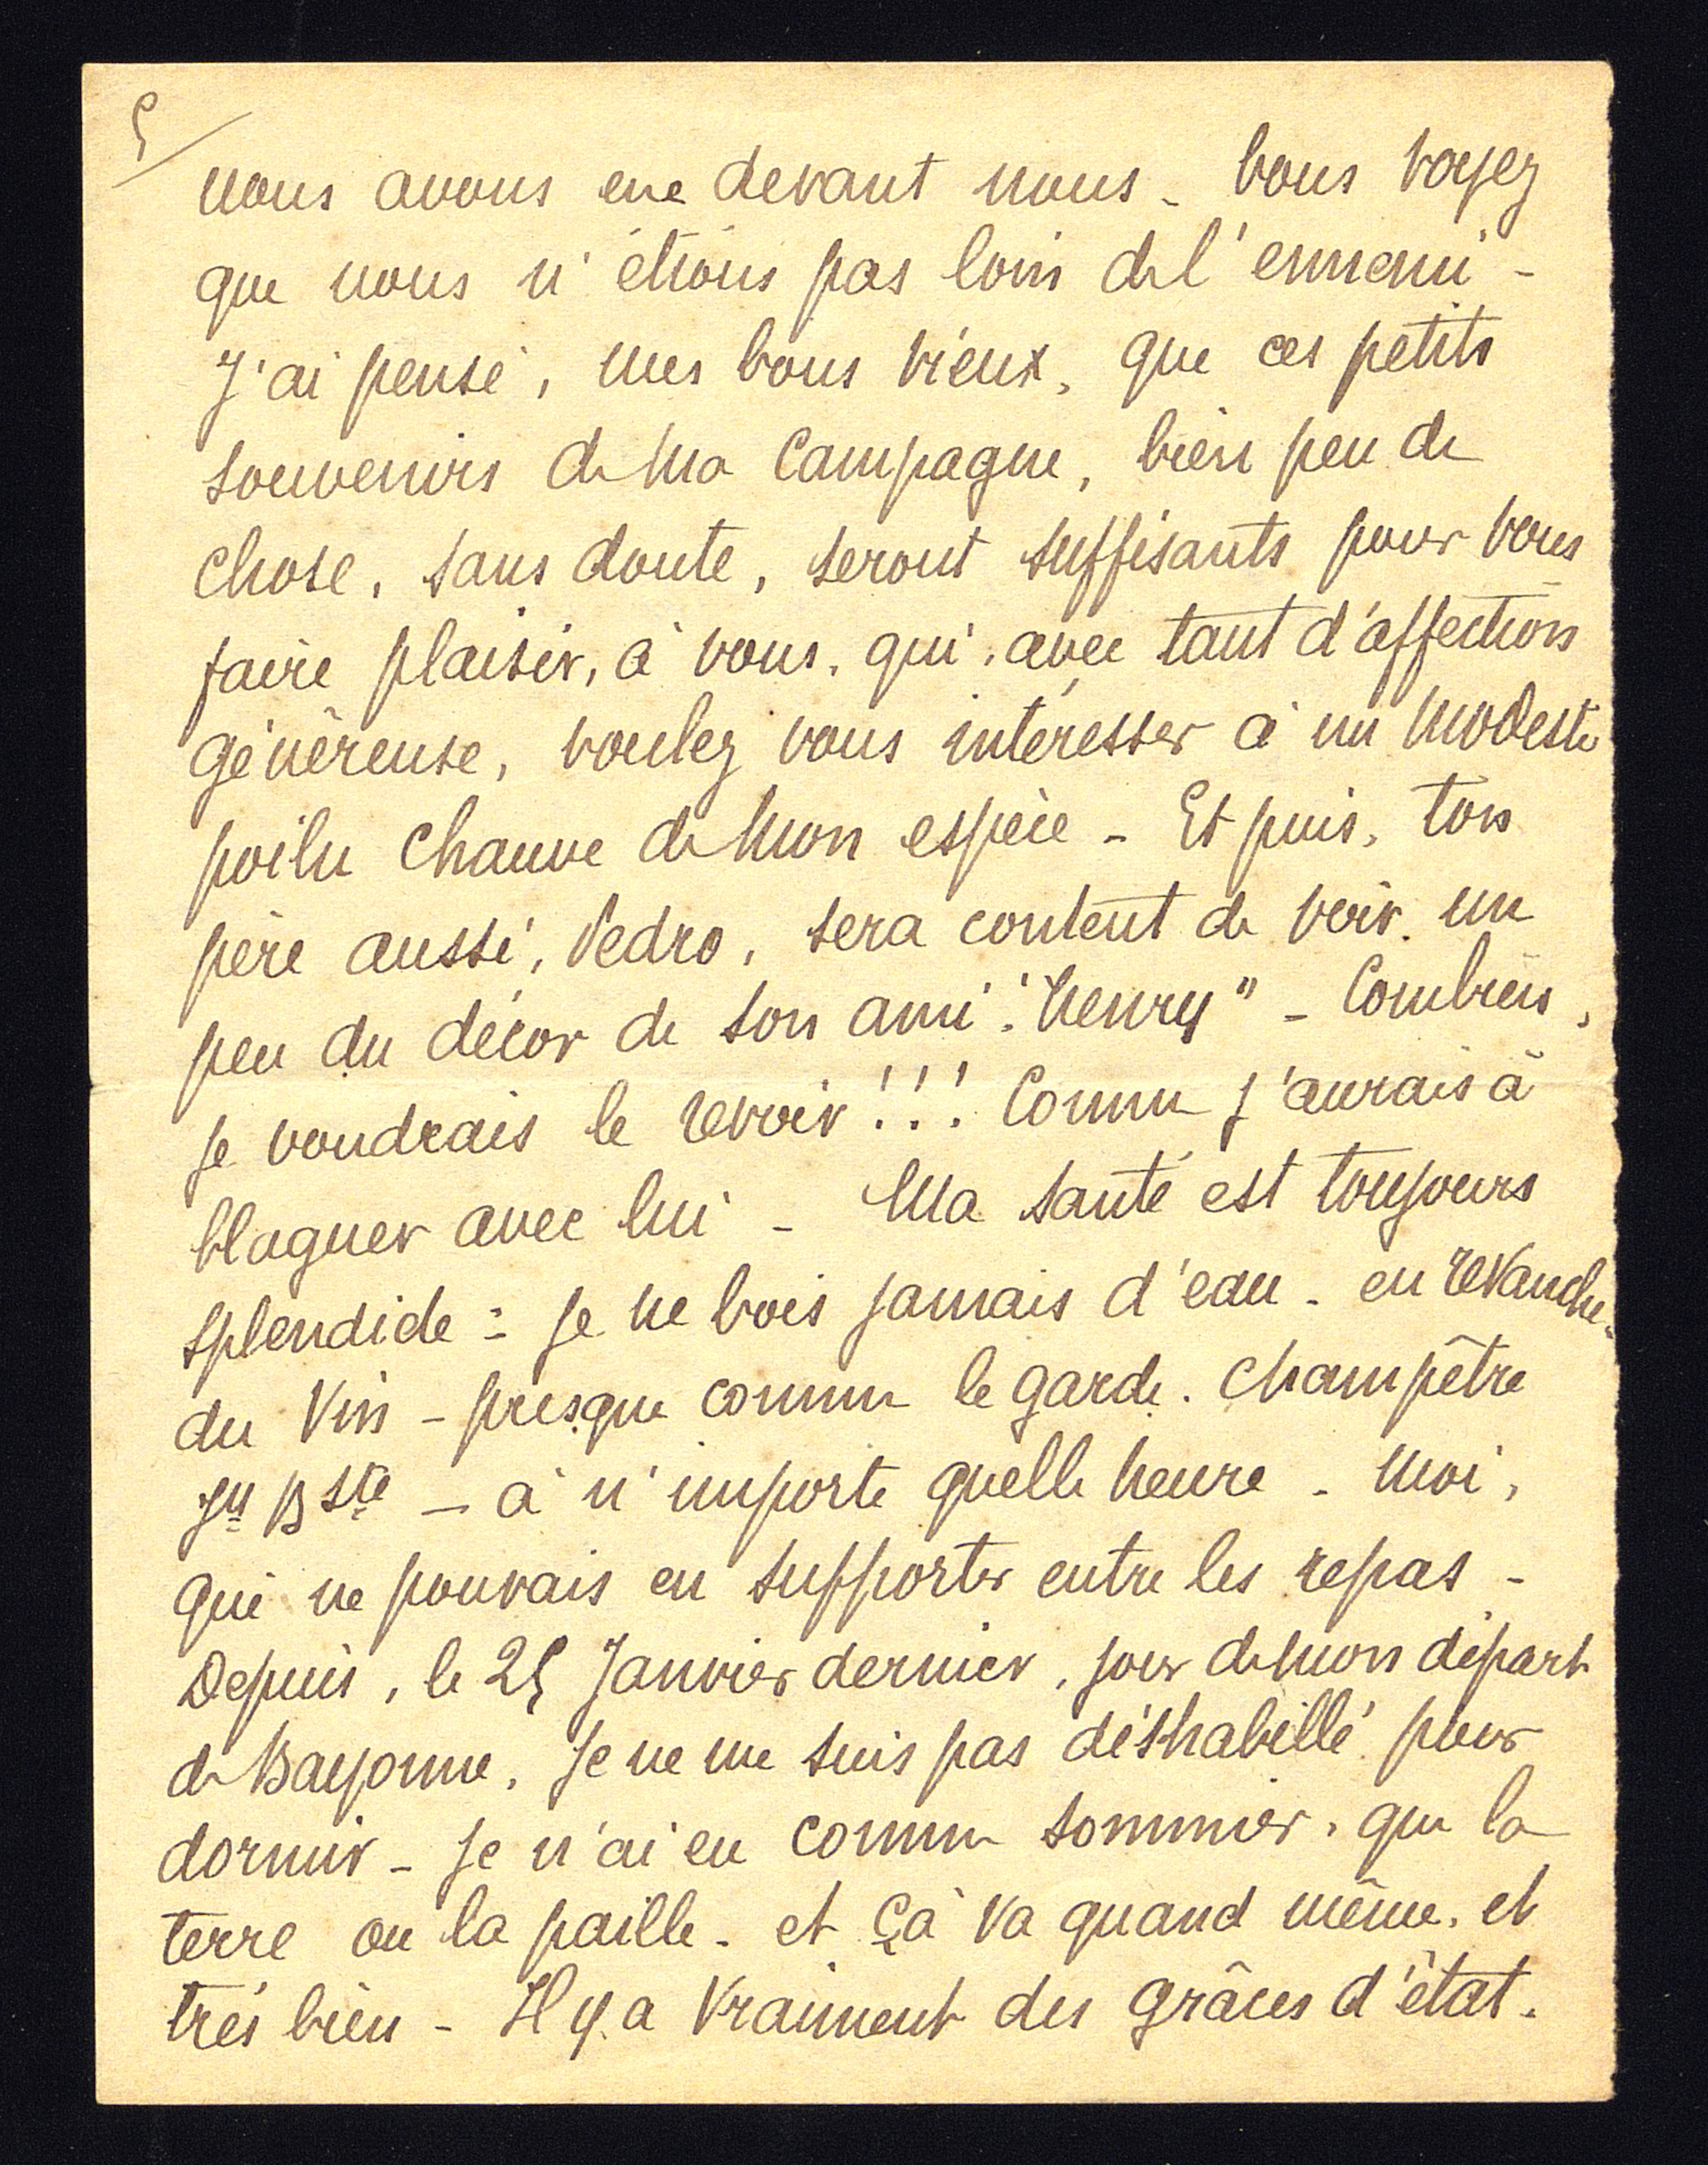 5/
nous avons eue devant nous - Vous voyez
que nous n'étions pas loin de l'ennemi -
J'ai pensé, mes bons vieux, que ces petits
souvenirs de ma Campagne, bien peu de
chose, sans doute, seront suffisants pour vous
faire plaisir, à vous, qui, avec tant d'affection
généreuse, voulez vous intéresser à un modeste
poilu chauve de mon espèce - Et puis, ton
père aussi, Pedro, sera content de voir un
peu du décor de son ami "Henry" - Combien,
je voudrais le revoir!!! Comme j'aurais à
blaguer avec lui - Ma santé est toujours
splendide : je ne bois jamais d'eau - en revanche -
du Vin - presque comme le garde. Champêtre
Jn Bste - à n'importe quelle heure - Moi,
qui ne pouvais en supporter entre les repas -
Depuis, le 25 Janvier dernier, jour de mon départ
de Bayonne, je ne me suis pas déshabillé pour
dormir - je n'ai eu comme sommier, que la
terre ou la paille - et çà va quand même, et
très bien - Il y a Vraiment des grâces d'état.